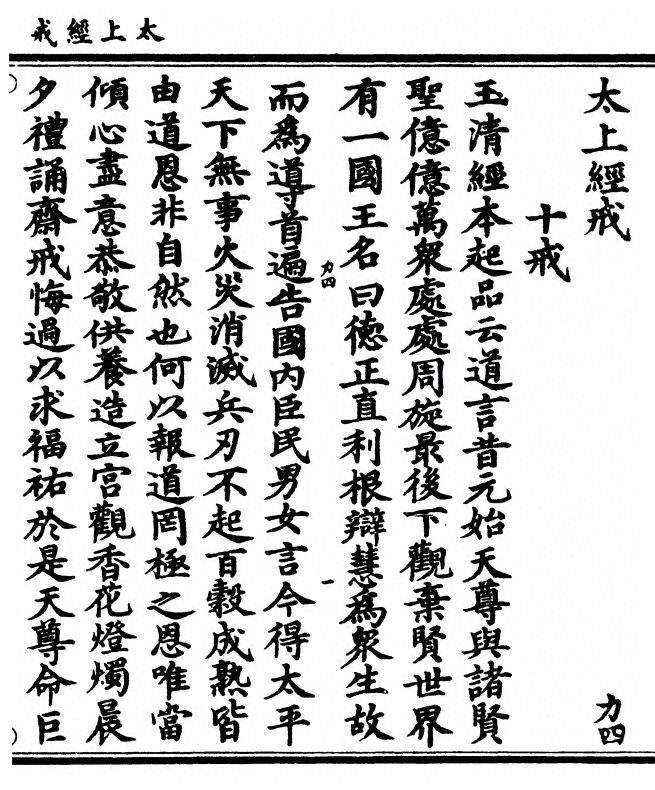 太上經戒
太上經戒
力四
十戒
玉清經本起品云道言昔元始天尊與諸賢
聖億億萬衆處處周旋最後下觀棄賢世界
有一國王名曰德正直利根辯慧爲衆生故
力四
一
而爲導首遍告國内臣民男女言今得太平
天下無事火災消滅兵刃不起百穀成熟皆
由道恩非自然也何以報道罔極之恩唯當
傾心盡意恭敬供養造立宫觀香花燈燭晨
夕禮誦齋戒悔過以求福祐於是天尊命巨